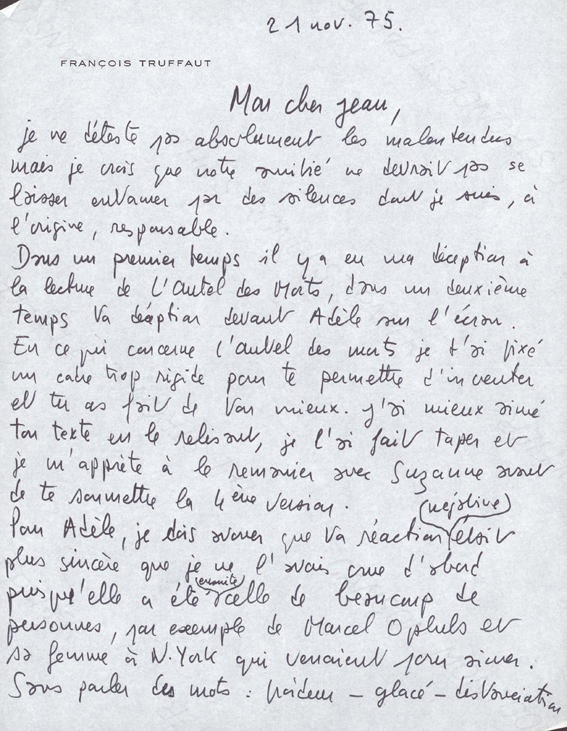 21 nov. 75.
FRANÇOIS TRUFFAUT
Mon cher Jean,
je ne déteste pas absolument les malentendus
mais je crois que notre amitié ne devrait pas se
laisser entamer par des silences dont je suis, à
l'origine, responsable.
Dans un premier temps il y a eu ma déception à
la lecture de L'Autel des Morts, dans un deuxième
temps ta déception devant Adèle sur l'écran.
En ce qui concerne l'autel des morts je t'ai fixé
un cadre trop rigide pour te permettre d'inventer
et tu as fait de ton mieux. J'ai mieux aimé
ton texte en le relisant, je l'ai fait taper et
je m'apprète à le remanier avec Suzanne avant
de te soumettre la 4ème version.
(négative)
Pour Adèle, je dois avouer que ta réaction était
plus sincère que je ne l'avais crue d'abord
(ensuite)
puisqu'elle a été celle de beaucoup de
personnes, par exemple de Marcel Ophuls et
sa femme à N.York qui venaient pour aimer.
Sans parler des mots : froideur – glacé – distanciation